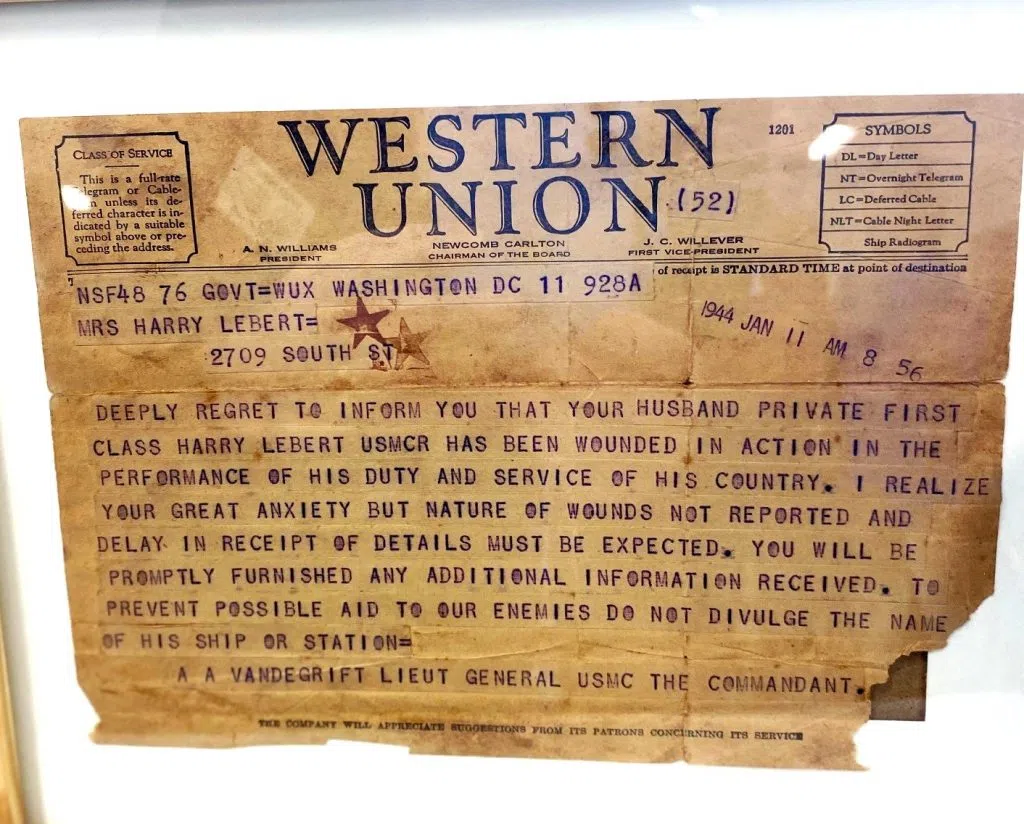 CLASS OF SERVICE
This is a full-rate
Telegram or Cable-
unless its de-
ferred character is in-
dicated by a suitable
symbol above or pre-
ceding the address.
WESTERN
UNION
(52)
A. N. WILLIAMS
PRESIDENT
NEWCOMB CARLTON
CHAIRMAN OF THE BOARD
J. C. WILLEVER
FIRST VICE-PRESIDENT
1201
SYMBOLS
DL=Day Letter
NT=Overnight Telegram
LC=Deferred Cable
NLT=Cable Night Letter
Ship Radiogram
of receipt is STANDARD TIME at point of destination
NSF48 76 GOVT=WUX WASHINGTON DC 11 928A
MRS HARRY LEBERT=
2709 SOUTH ST
1944 JAN 11 AM 8 56
DEEPLY REGRET TO INFORM YOU THAT YOUR HUSBAND PRIVATE FIRST
CLASS HARRY LEBERT USMCR HAS BEEN WOUNDED IN ACTION IN THE
PERFORMANCE OF HIS DUTY AND SERVICE OF HIS COUNTRY. I REALIZE
YOUR GREAT ANXIETY BUT NATURE OF WOUNDS NOT REPORTED AND
DELAY IN RECEIPT OF DETAILS MUST BE EXPECTED. YOU WILL BE
PROMPTLY FURNISHED ANY ADDITIONAL INFORMATION RECEIVED. TO
PREVENT POSSIBLE AID TO OUR ENEMIES DO NOT DIVULGE THE NAME
OF HIS SHIP OR STATION=
A A VANDEGRIFT LIEUT GENERAL USMC THE COMMANDANT.
THE COMPANY WILL APPRECIATE SUGGESTIONS FROM ITS PATRONS CONCERNING ITS SERVICE